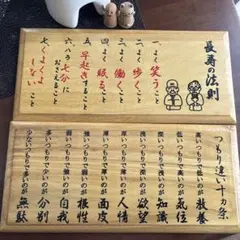 長寿の法則
一、よく笑うこと
二、よく歩くこと
三、よく働くこと
四、よく眠ること
五、早起きすること
六、ハラ七分におさえること
七、くよくよしない
つもり違い十ヵ条
高いつもりで低いのが教養
低いつもりで高いのが気位
深いつもりで浅いのが知識
浅いつもりで深いのが欲望
厚いつもりで薄いのが人情
薄いつもりで厚いのが面皮
強いつもりで弱いのが根性
弱いつもりで強いのが自我
多いつもりで少ないのが分別
少ないつもりで多いのが無駄